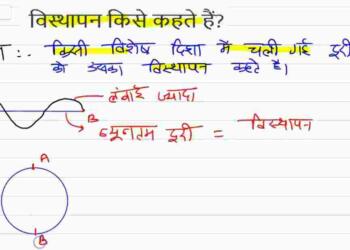 विस्थापन किसे कहते हैं?
:- किसी विशेष दिशा में चली गई दूरी
को उसका विस्थापन कहते हैं।
लंबाई ज्यादा
B
न्यूनतम दूरी = विस्थापन
A
B